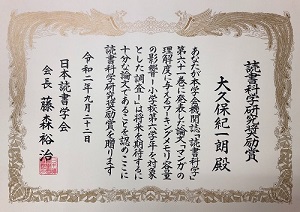 読書科学研究奨励賞
大久保紀一朗殿
あなたが本学会機関誌『読書科学』
第六一巻に発表した論文「マンガの
理解度に与えるワーキングメモリ容量
の影響－小学校第六学年を対象
とした調査－」は将来を期待するに
十分な論文であることを認めここに
読書科学研究奨励賞を贈ります
令和二年九月二十二日
日本読書学会
会長 藤森裕治